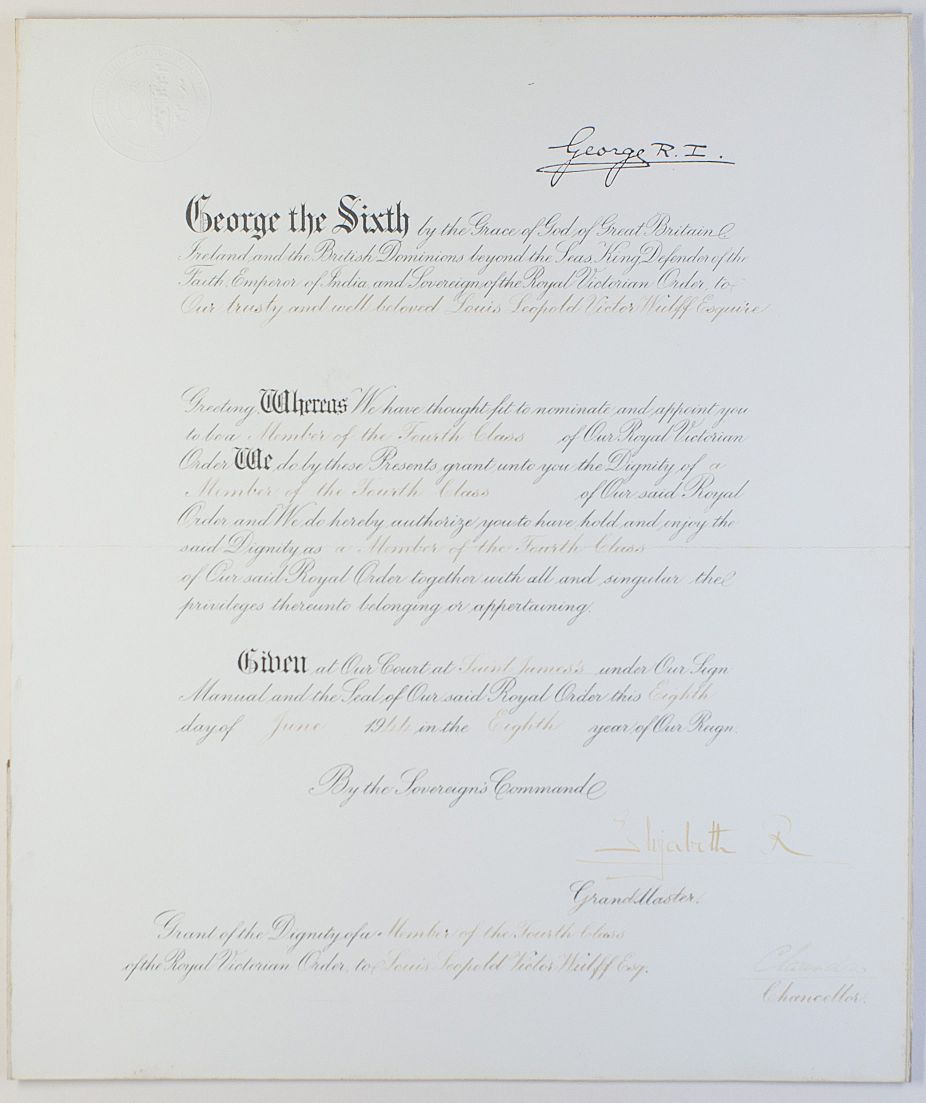 George R. I.
George the Sixth by the Grace of God, of Great Britain
Ireland and the British Dominions beyond the Seas King, Defender of the
Faith, Emperor of India, and Sovereign of the Royal Victorian Order, to
Our trusty and well beloved Louis Leopold Victor Wulff Esquire
Greeting, Whereas We have thought fit to nominate and appoint you
to be a Member of the Fourth Class of Our Royal Victorian
Order We do by these Presents, grant unto you the Dignity of a
Member of the Fourth Class of Our said Royal
Order and We do hereby authorize you to have, hold and, enjoy the
said Dignity as a Member of the Fourth Class
of Our said Royal Order together with all and singular the
privileges thereunto belonging or appertaining.
Given at Our Court at Saint James's under Our Sign
Manual and the Seal of Our said Royal Order this Eighth
day of June 1944 in the Eighth year of Our Reign.
By the Sovereign's Command
Elizabeth R
Grand Master.
Grant of the Dignity of a Member of the Fourth Class
of the Royal Victorian Order, to Louis Leopold Victor Wulff Esq.
Chancellor.